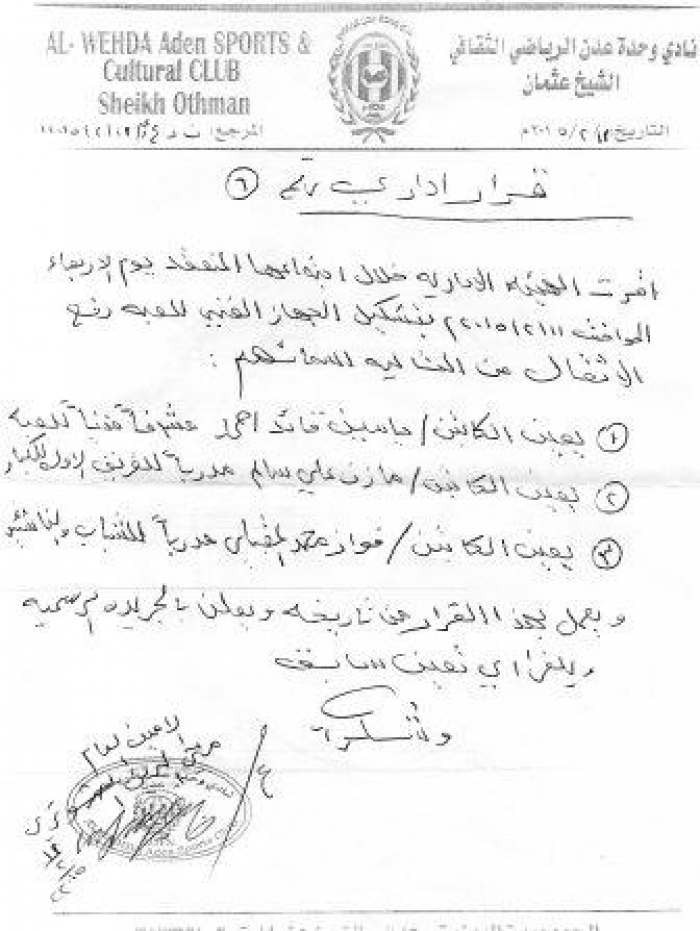 AL- WEHDA Aden SPORTS &
Cultural CLUB
Sheikh Othman
نادي وحدة عدن الرياضي الثقافي
الشيخ عثمان
التاريخ: ٢٠١٥/٢/١٢م
المرجع:
قرار اداري رقم ٦
اقرت الهيئه الاداريه خلال اجتماعها المنعقد يوم الاربعاء
الموافق ٢٠١٥/٢/١١م بتشكيل الجهاز الفني للعبه رفع
الاثقال من التاليه اسمائهم :
١ يعين الكابتن / ياسين قائد احمد مشرفاً فنياً للعبه
٢ يعين الكابتن / مازن علي سالم مدرباً للفريق الاول للكبار
٣ يعين الكابتن / فواز محمد مدرباً للشباب والناشئين
ويعمل بهذا القرار من تاريخه ويعلن بالجريده الرسميه
ويلغى اي تعيين سابق
ولاشكر
الامين العام